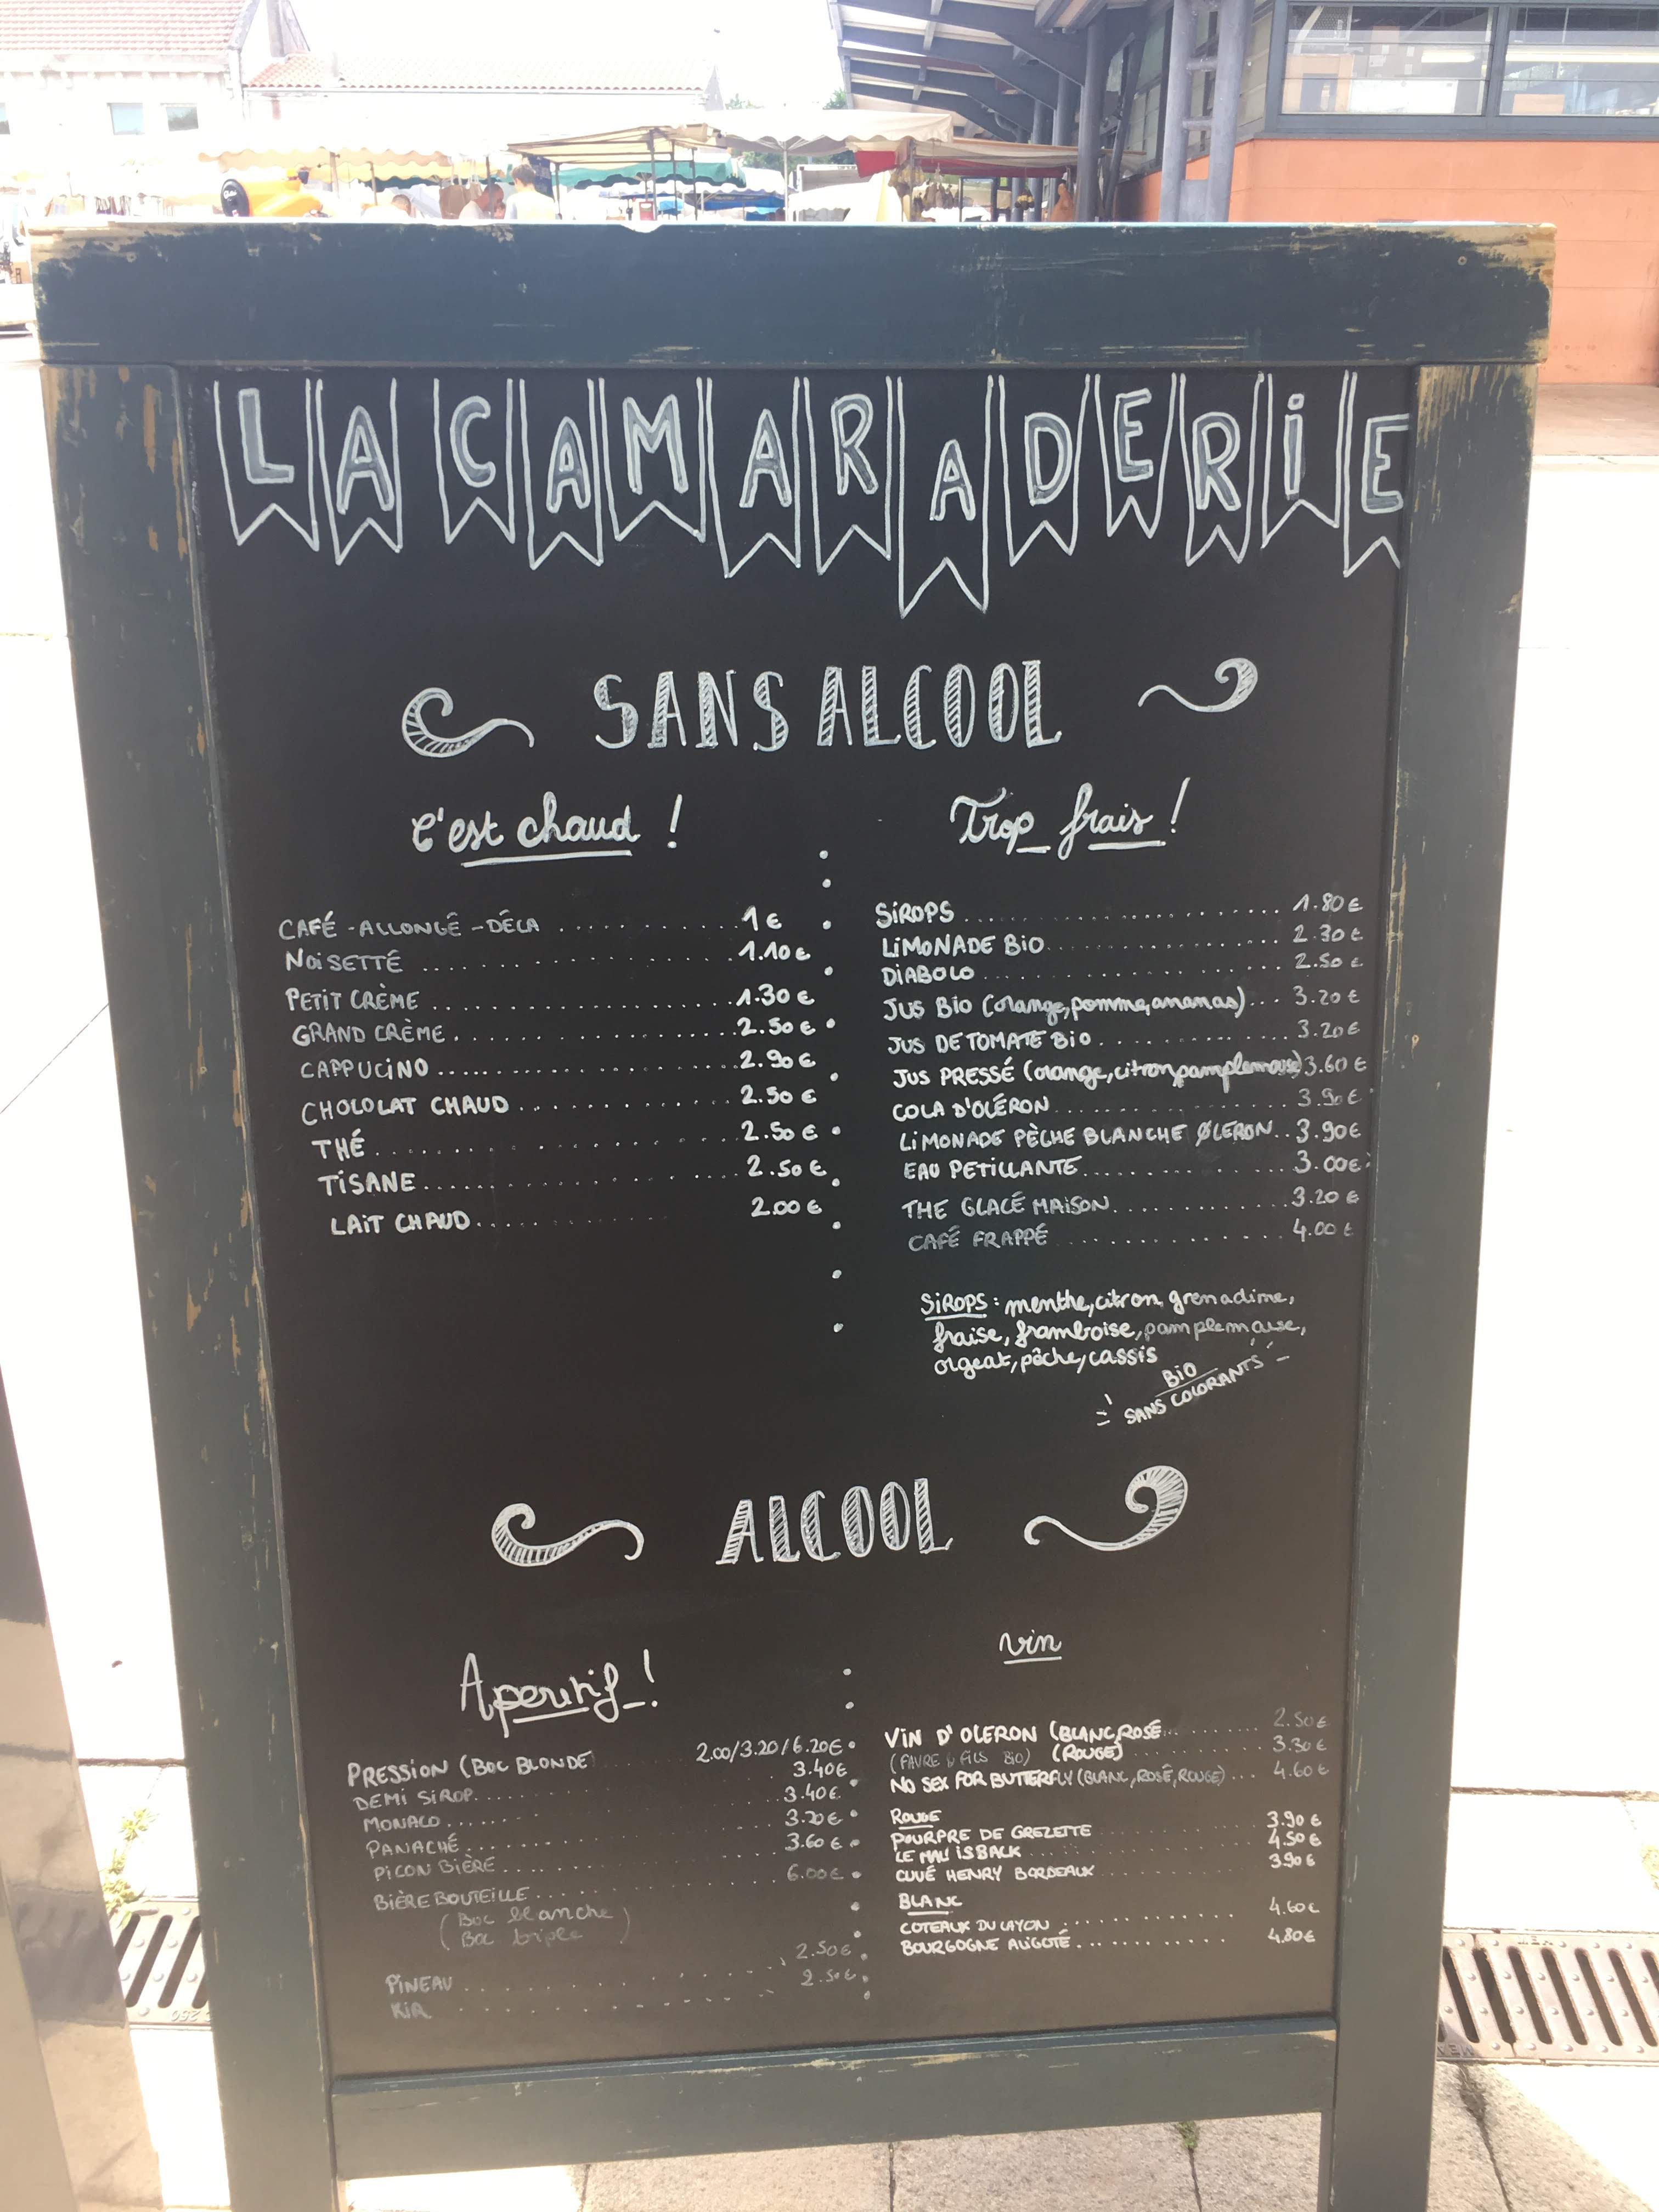 LA CAMARADERiE
SANS ALCOOL
C'est chaud !
CAFÉ - ALLONGÉ - DÉCA ............ 1 €
NOiSETTE ............ 1.10 €
PETIT CRÈME ............ 1.30 €
GRAND CRÈME ............ 2.50 €
CAPPUCiNO ............ 2.90 €
CHOLOLAT CHAUD ............ 2.50 €
THÉ ............ 2.50 €
TiSANE ............ 2.50 €
LAiT CHAUD ............ 2.00 €
Trop frais !
SiROPS ............ 1.80 €
LiMONADE BiO ............ 2.30 €
DiABOLO ............ 2.50 €
JUS BiO (orange, pomme, ananas) ... 3.20 €
JUS DE TOMATE BiO ............ 3.20 €
JUS PRESSÉ (orange, citron, pamplemousse) 3.60 €
COLA D'OLÉRON ............ 3.90 €
LiMONADE PÈCHE BLANCHE ØLERON .. 3.90 €
EAU PETiLLANTE ............ 3.00 €
THE GLACÉ MAiSON ............ 3.20 €
CAFÉ FRAPPÉ ............ 4.00 €
SiROPS : menthe, citron, grenadine,
fraise, framboise, pamplemousse,
orgeat, pêche, cassis
BiO
SANS COLORANTS
ALCOOL
Aperitif !
PRESSiON (BOC BLONDE) 2.00/3.20/6.20€
DEMi SiROP ............ 3.40€
MONACO ............ 3.40€
PANACHÉ ............ 3.20€
PiCON BiÈRE ............ 3.60€
BiÈRE BOUTEiLLE ............ 6.00€
(Boc blanche)
(Boc triple)
PiNEAU ............ 2.50€
KiR ............ 2.50€
vin
ViN D'OLERON (BLANC, ROSÉ ............ 2.50€
(FAVRE & FiLS BiO) (ROUGE) ............ 3.30€
NO SEX FOR BUTTERFLY (BLANC, ROSÉ, ROUGE) ... 4.60€
ROUGE
POURPRE DE GREZETTE ............ 3.90€
LE MAL iS BACK ............ 4.50€
CUVÉ HENRY BORDEAUX ............ 3.90€
BLANC
COTEAUX DU LAYON ............ 4.60€
BOURGOGNE ALiGOTÉ ............ 4.80€